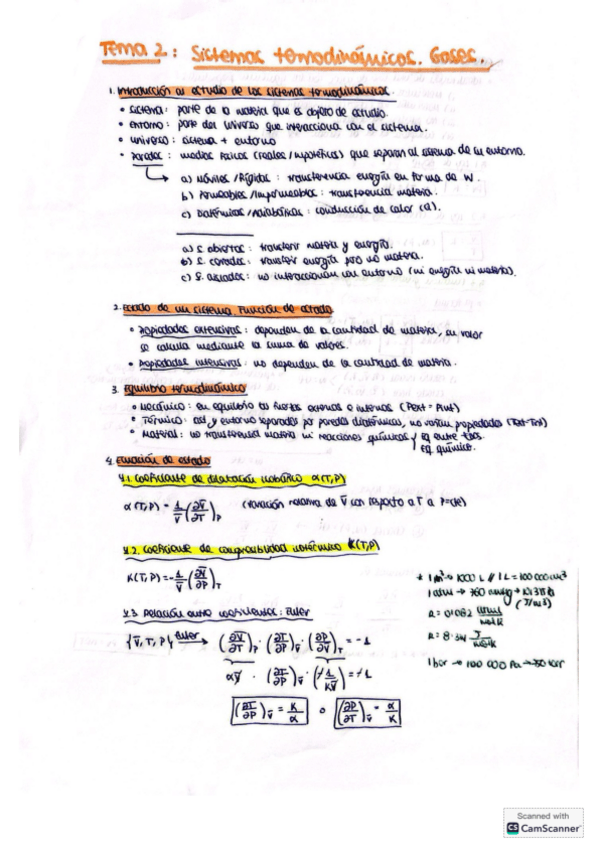 Tema 2: Sistemas termodinámicos. Gases.
1. Introducción al estudio de los sistemas termodinámicos.
• Sistema: parte de la materia que es objeto de estudio.
• Entorno: parte del universo que interacciona con el sistema.
• Universo: sistema + entorno
• Paredes: medios físicos (reales/hipotéticos) que separan al sistema de su entorno.
a) Móviles/Rígidas: transferencia energía en forma de W.
b) Permeables/Impermeables: transferencia materia.
c) Diatérmicas/Adiabáticas: conducción de calor (Q).
a) S. abiertos: transferir materia y energía.
b) S. cerrados: transferir energía pero no materia.
c) S. aislados: no interaccionan con entorno (ni energía ni materia).
2. Estado de un sistema. Función de estado
• Propiedades extensivas: dependen de la cantidad de materia, su valor
se calcula mediante la suma de valores.
• Propiedades intensivas: no dependen de la cantidad de materia.
3. Equilibrio termodinámico
• Mecánico: en equilibrio las fuerzas externas e internas (Pext = Pint)
• Térmico: y entorno separados por paredes diatérmicas, no varían propiedades (Text=Tint)
• Material: no transferencia materia ni reacciones químicas y Eq entre fases.
Eq. químico.
4. Ecuación de estado
4.1. Coeficiente de dilatación isobárico α(T,P)
α(T,P) = 1/V̅ (∂V̅/∂T)P (variación relativa de V̅ con respecto a T a P=cte)
4.2. Coeficiente de compresibilidad isotérmico K(T,P)
K(T,P) = -1/V̅ (∂V̅/∂P)T
4.3 Relación entre coeficientes: Euler
{V̅, T, P} Euler → (∂V̅/∂T)P · (∂T/∂P)V̅ · (∂P/∂V̅)T = -1
αV̅ · (∂T/∂P)V̅ · (-1/KV̅) = -1
(∂T/∂P)V̅ = K/α o (∂P/∂T)V̅ = α/K
* 1 m³ → 1000 L // 1L = 1000 cm³
1 atm → 760 mmHg →
(J/m³)
R = 0'082 atm·L/mol·K
R = 8'314 J/mol·K
1 bar → 100 000 Pa → 750 torr
Scanned with
CS CamScanner